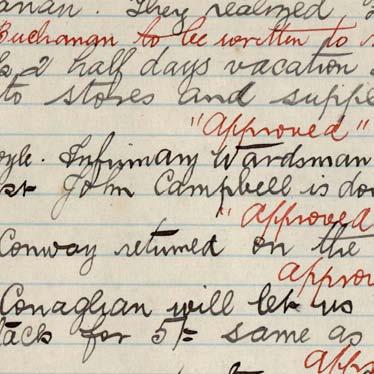 anan. They realized
Buchanan to be written to
2 half days vacation
to stores and suppl
"Approved"
oyle. Infirmary Wardsman
st John Campbell is do
"Approved
Conway returned on the
approv
Conaghan will let us
tack for 5/- same as
appro